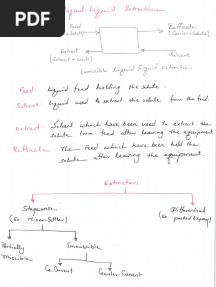 PDF
Liquid-Liquid Extraction
Feed
Raffinate
(Carrier+Solute)
Extract
(Solvent + Solute)
Solvent
Immiscible liquid liquid extraction
Feed: Liquid feed holding the solute.
Solvent: Liquid used to extract the solute from the feed.
Extract: Solvent which have been used to extract the
solute from feed after leaving the equipment
Raffinate: The Feed which have been held the
solute after leaving the equipment.
Extractors
Stagewise
(Ex. mixer-Settler)
Differential
(Ex. packed & spray)
Partially
Miscible
Immiscible
Co-Current
Counter-Current